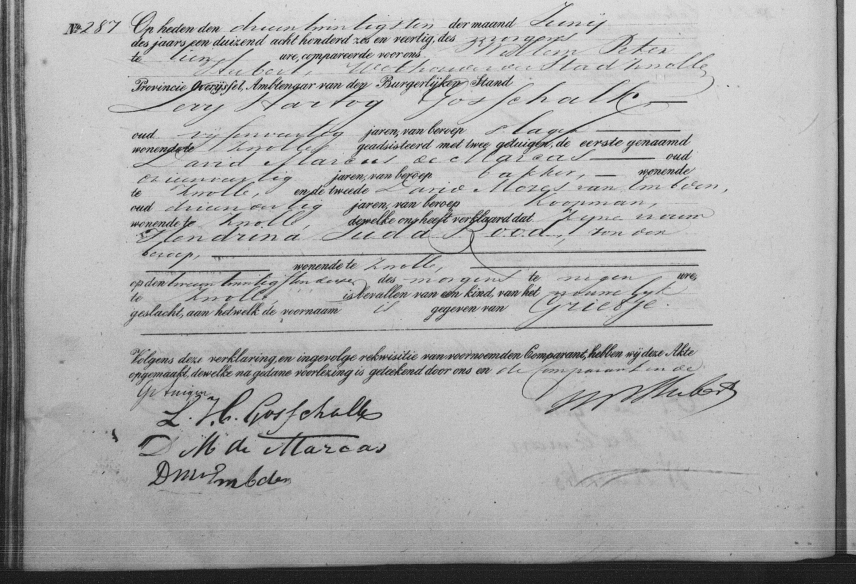 No 287 Op heden den drieentwintigsten der maand Junij
des jaars een duizend acht honderd zes en veertig, des morgens
te tien ure, compareerde voor ons Willem Peter
Hubert, Wethouder der Stad Zwolle
Provincie Overijssel, Ambtenaar van den Burgerlijken Stand
Levy Hartog Gosschalk
oud vijfenveertig jaren, van beroep slager
wonende te Zwolle geadsisteerd met twee getuigen, de eerste genaamd
David Marcus de Marcas oud
drieenveertig jaren, van beroep bakker, wonende
te Zwolle, en de tweede David Mozes van Embden,
oud drieendertig jaren, van beroep koopman,
wonende te Zwolle dewelke ons heeft verklaard dat zijne vrouw
Hendrina Juda Rood, zonder
beroep,
wonende te Zwolle,
op den tweeentwintigsten dezer des morgens te negen ure,
te Zwolle is bevallen van een kind, van het vrouwelijk
geslacht, aan hetwelk de voornaam is gegeven van Grietje.
Volgens deze verklaring, en ingevolge rekwisitie van voornoemden Comparant, hebben wij deze Akte
opgemaakt, dewelke na gidane voorlezing is geteekend door ons en de Comparant en de
Getuigen.
L. H. Gosschalk
D M de Marcas
D M v Embden